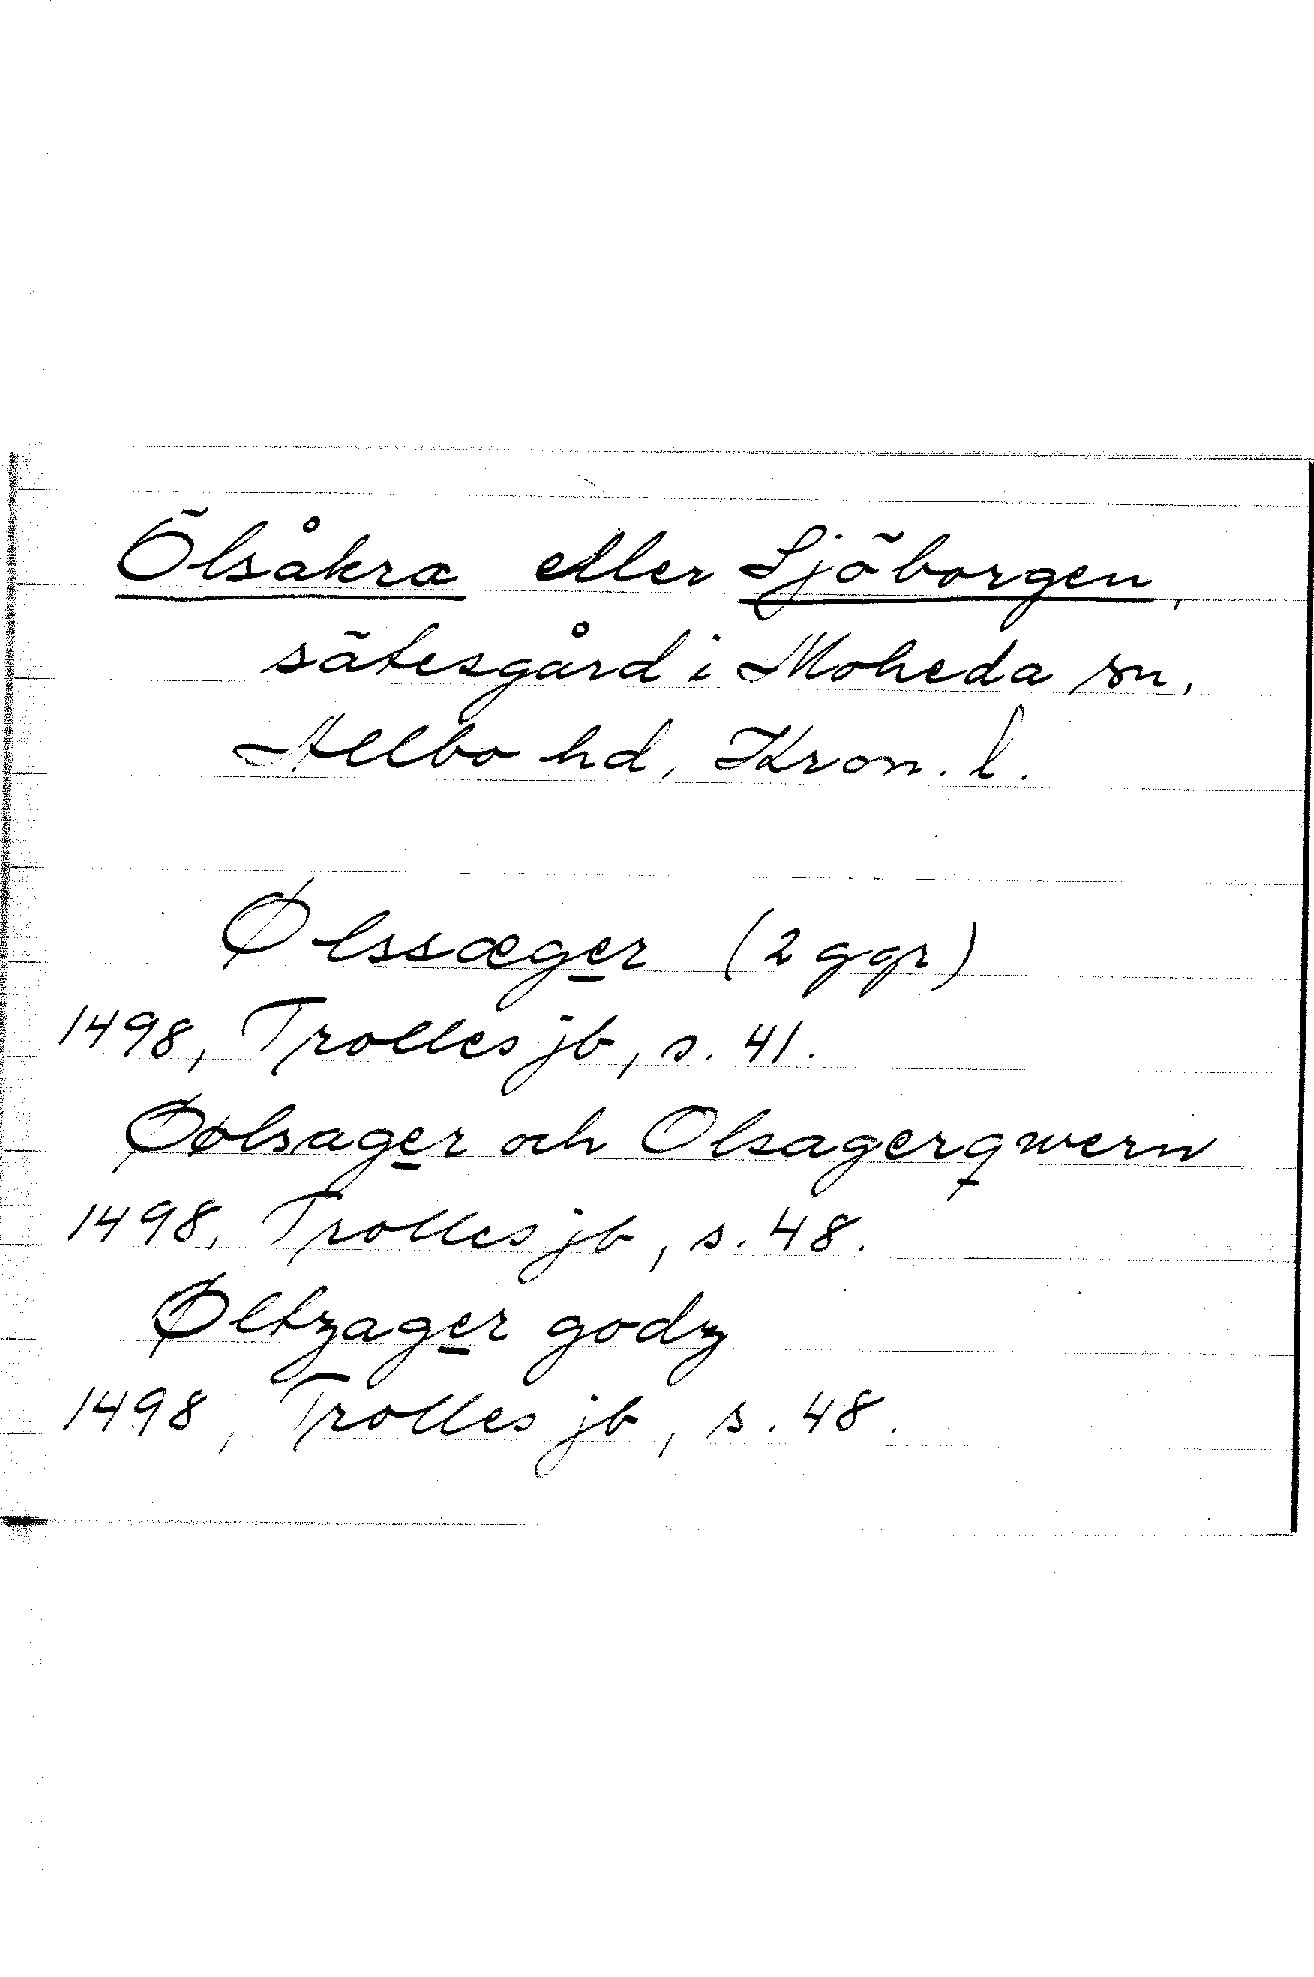 Ölsåkra eller Sjöborgen,
sätesgård i Moheda sn,
Allbo hd, Kron. l.
Ølssæger (2 ggr)
1498, Trolles jb, s. 41.
Øølsager och Olsagerqwern
1498, Trolles jb, s. 48.
Øltzager godz
1498, Trolles jb, s. 48.